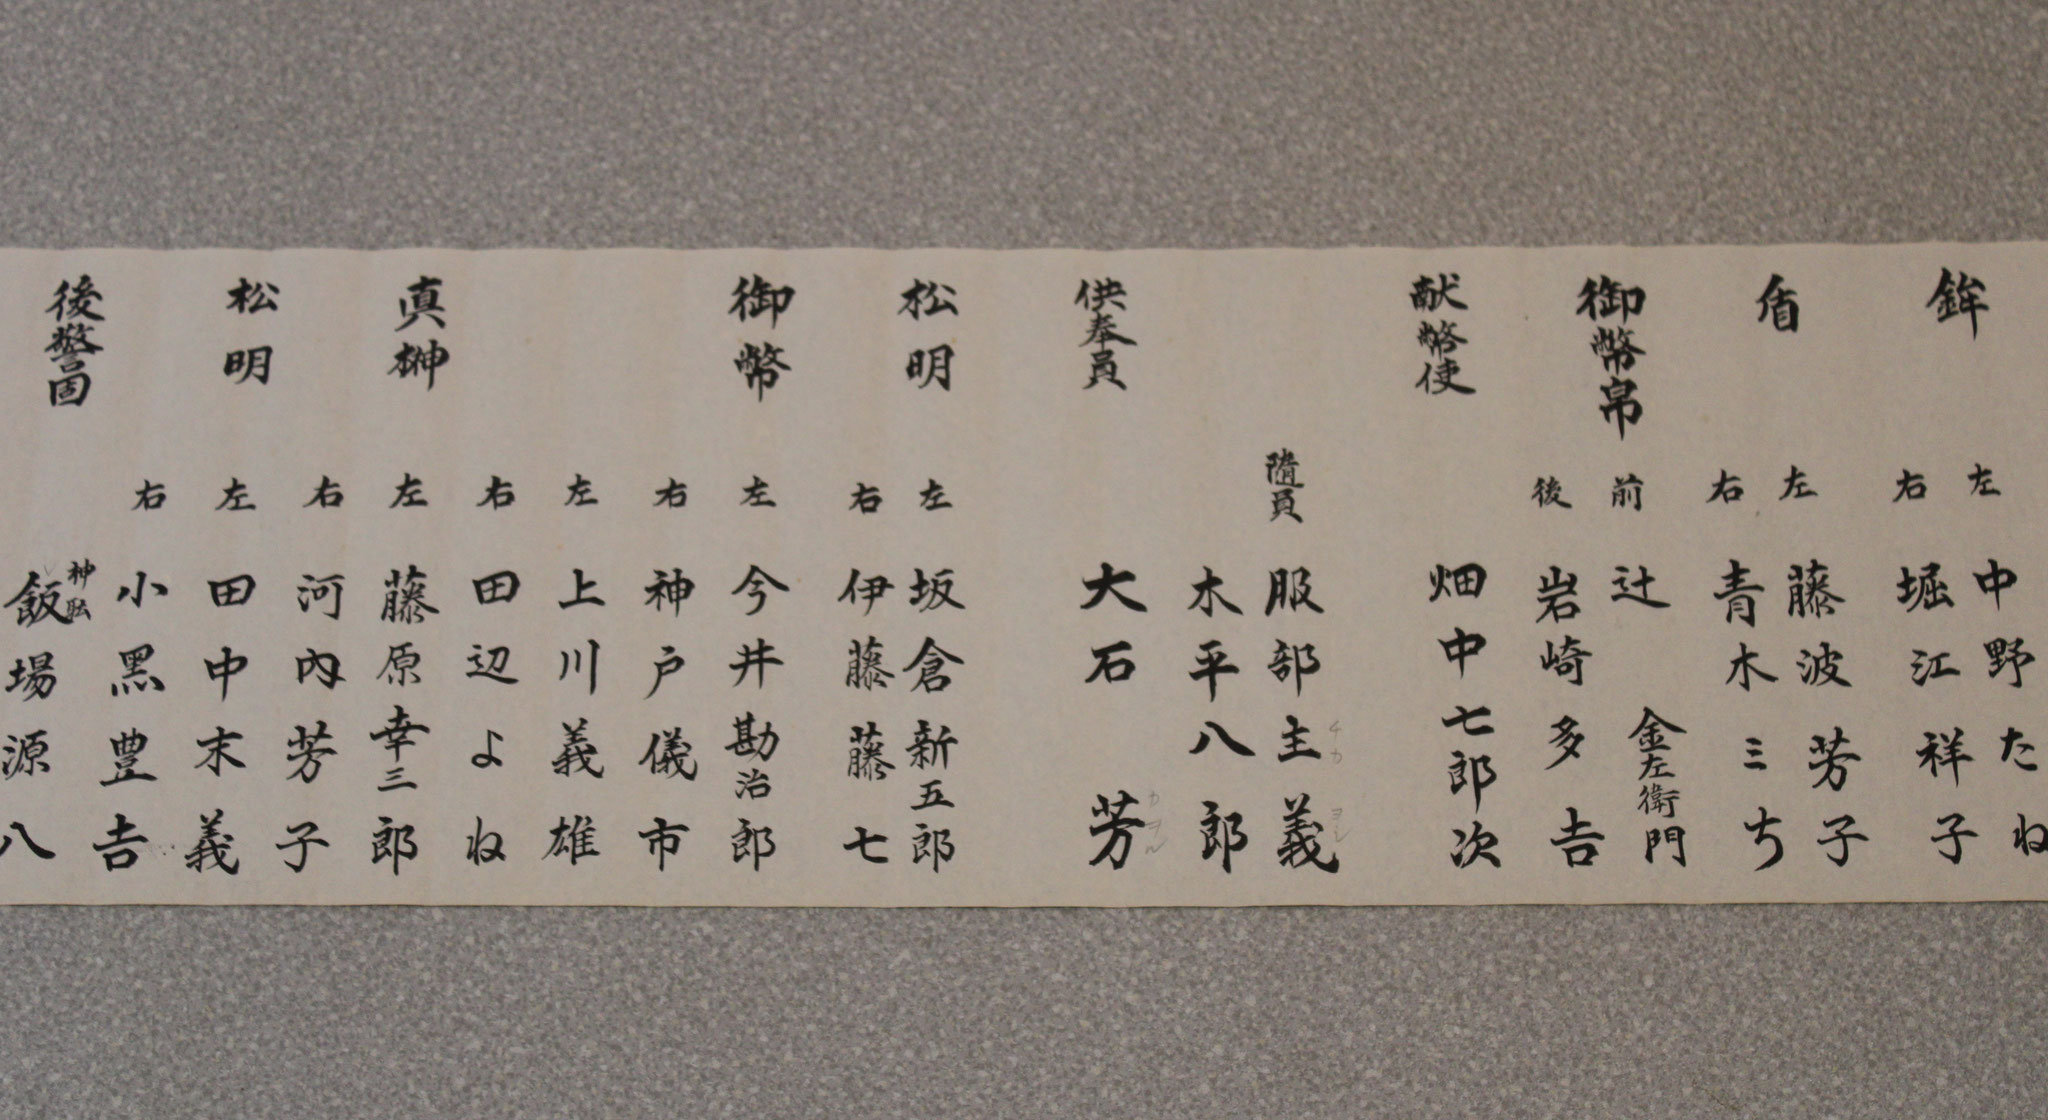 鉾
左 中野たね
右 堀江祥子
盾
左 藤波芳子
右 青木ミち
御幣帛
前 辻金左衛門
後 岩崎多吉
献幣使
畑中七郎次
随員 服部主義
チカ ヨシ
木平八郎
供奉員
大石芳
カヲル
松明
左 坂倉新五郎
右 伊藤藤七
御幣
左 今井勘治郎
右 神戸儀市
左 上川義雄
右 田辺よね
真榊
左 藤原幸三郎
右 河内芳子
松明
左 田中末義
右 小黒豊吉
後警固
飯場源八